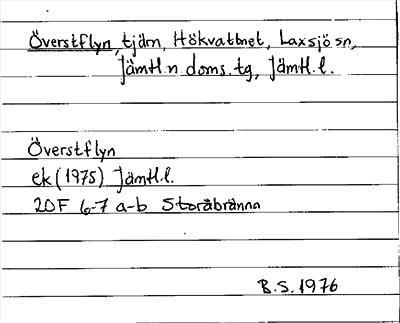 Överstflyn, tjärn, Hökvattnet, Laxsjö sn,
Jämtl. n. doms. tg, Jämtl. l.
Överstflyn
ek (1975) Jämtl. l.
20F 6-7 a-b Storåbränna
B.S. 1976